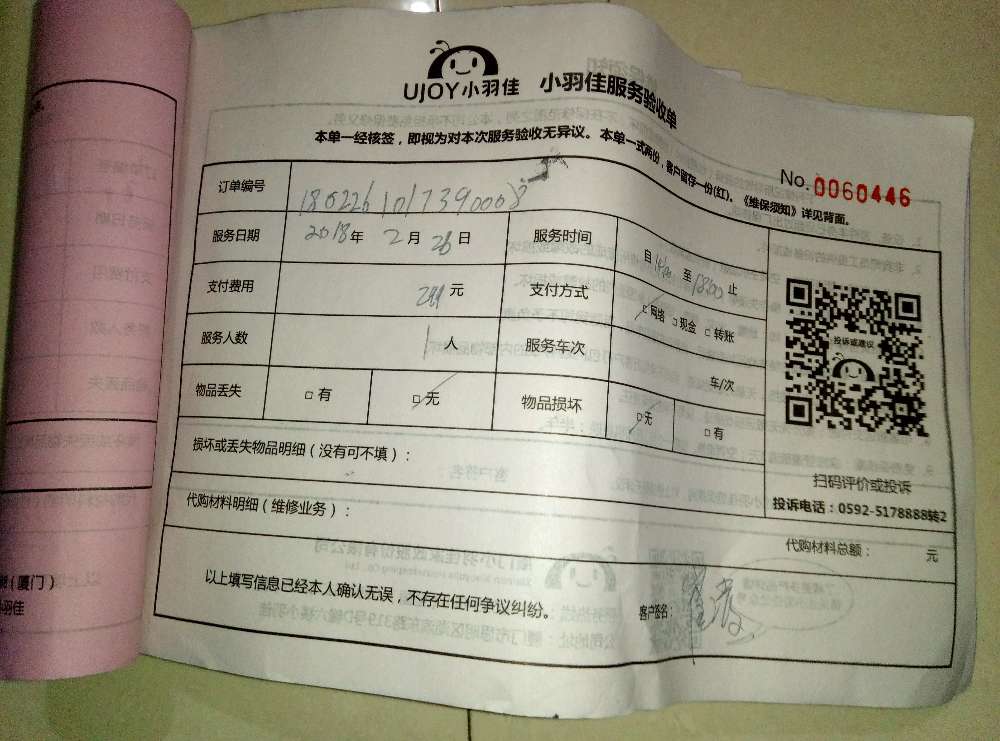 UJOY小羽佳 小羽佳服务验收单
本单一经核签，即视为对本次服务验收无异议。本单一式两份，客户留存一份(红)。《维保须知》详见背面。
No.0060446
订单编号 1802261017390008
服务日期 2018年 2月 26日 服务时间 自14:00至18:00止
支付费用 元 支付方式 □网络 □现金 □转账
服务人数 1人 服务车次 车/次
物品丢失 □有 □无 物品损坏 □无 □有
投诉或建议
损坏或丢失物品明细（没有可不填）：
扫码评价或投诉
投诉电话：0592-5178888转2
代购材料明细（维修业务）：
代购材料总额： 元
以上填写信息已经本人确认无误，不存在任何争议纠纷。 客户签名：
（厦门）
小羽佳